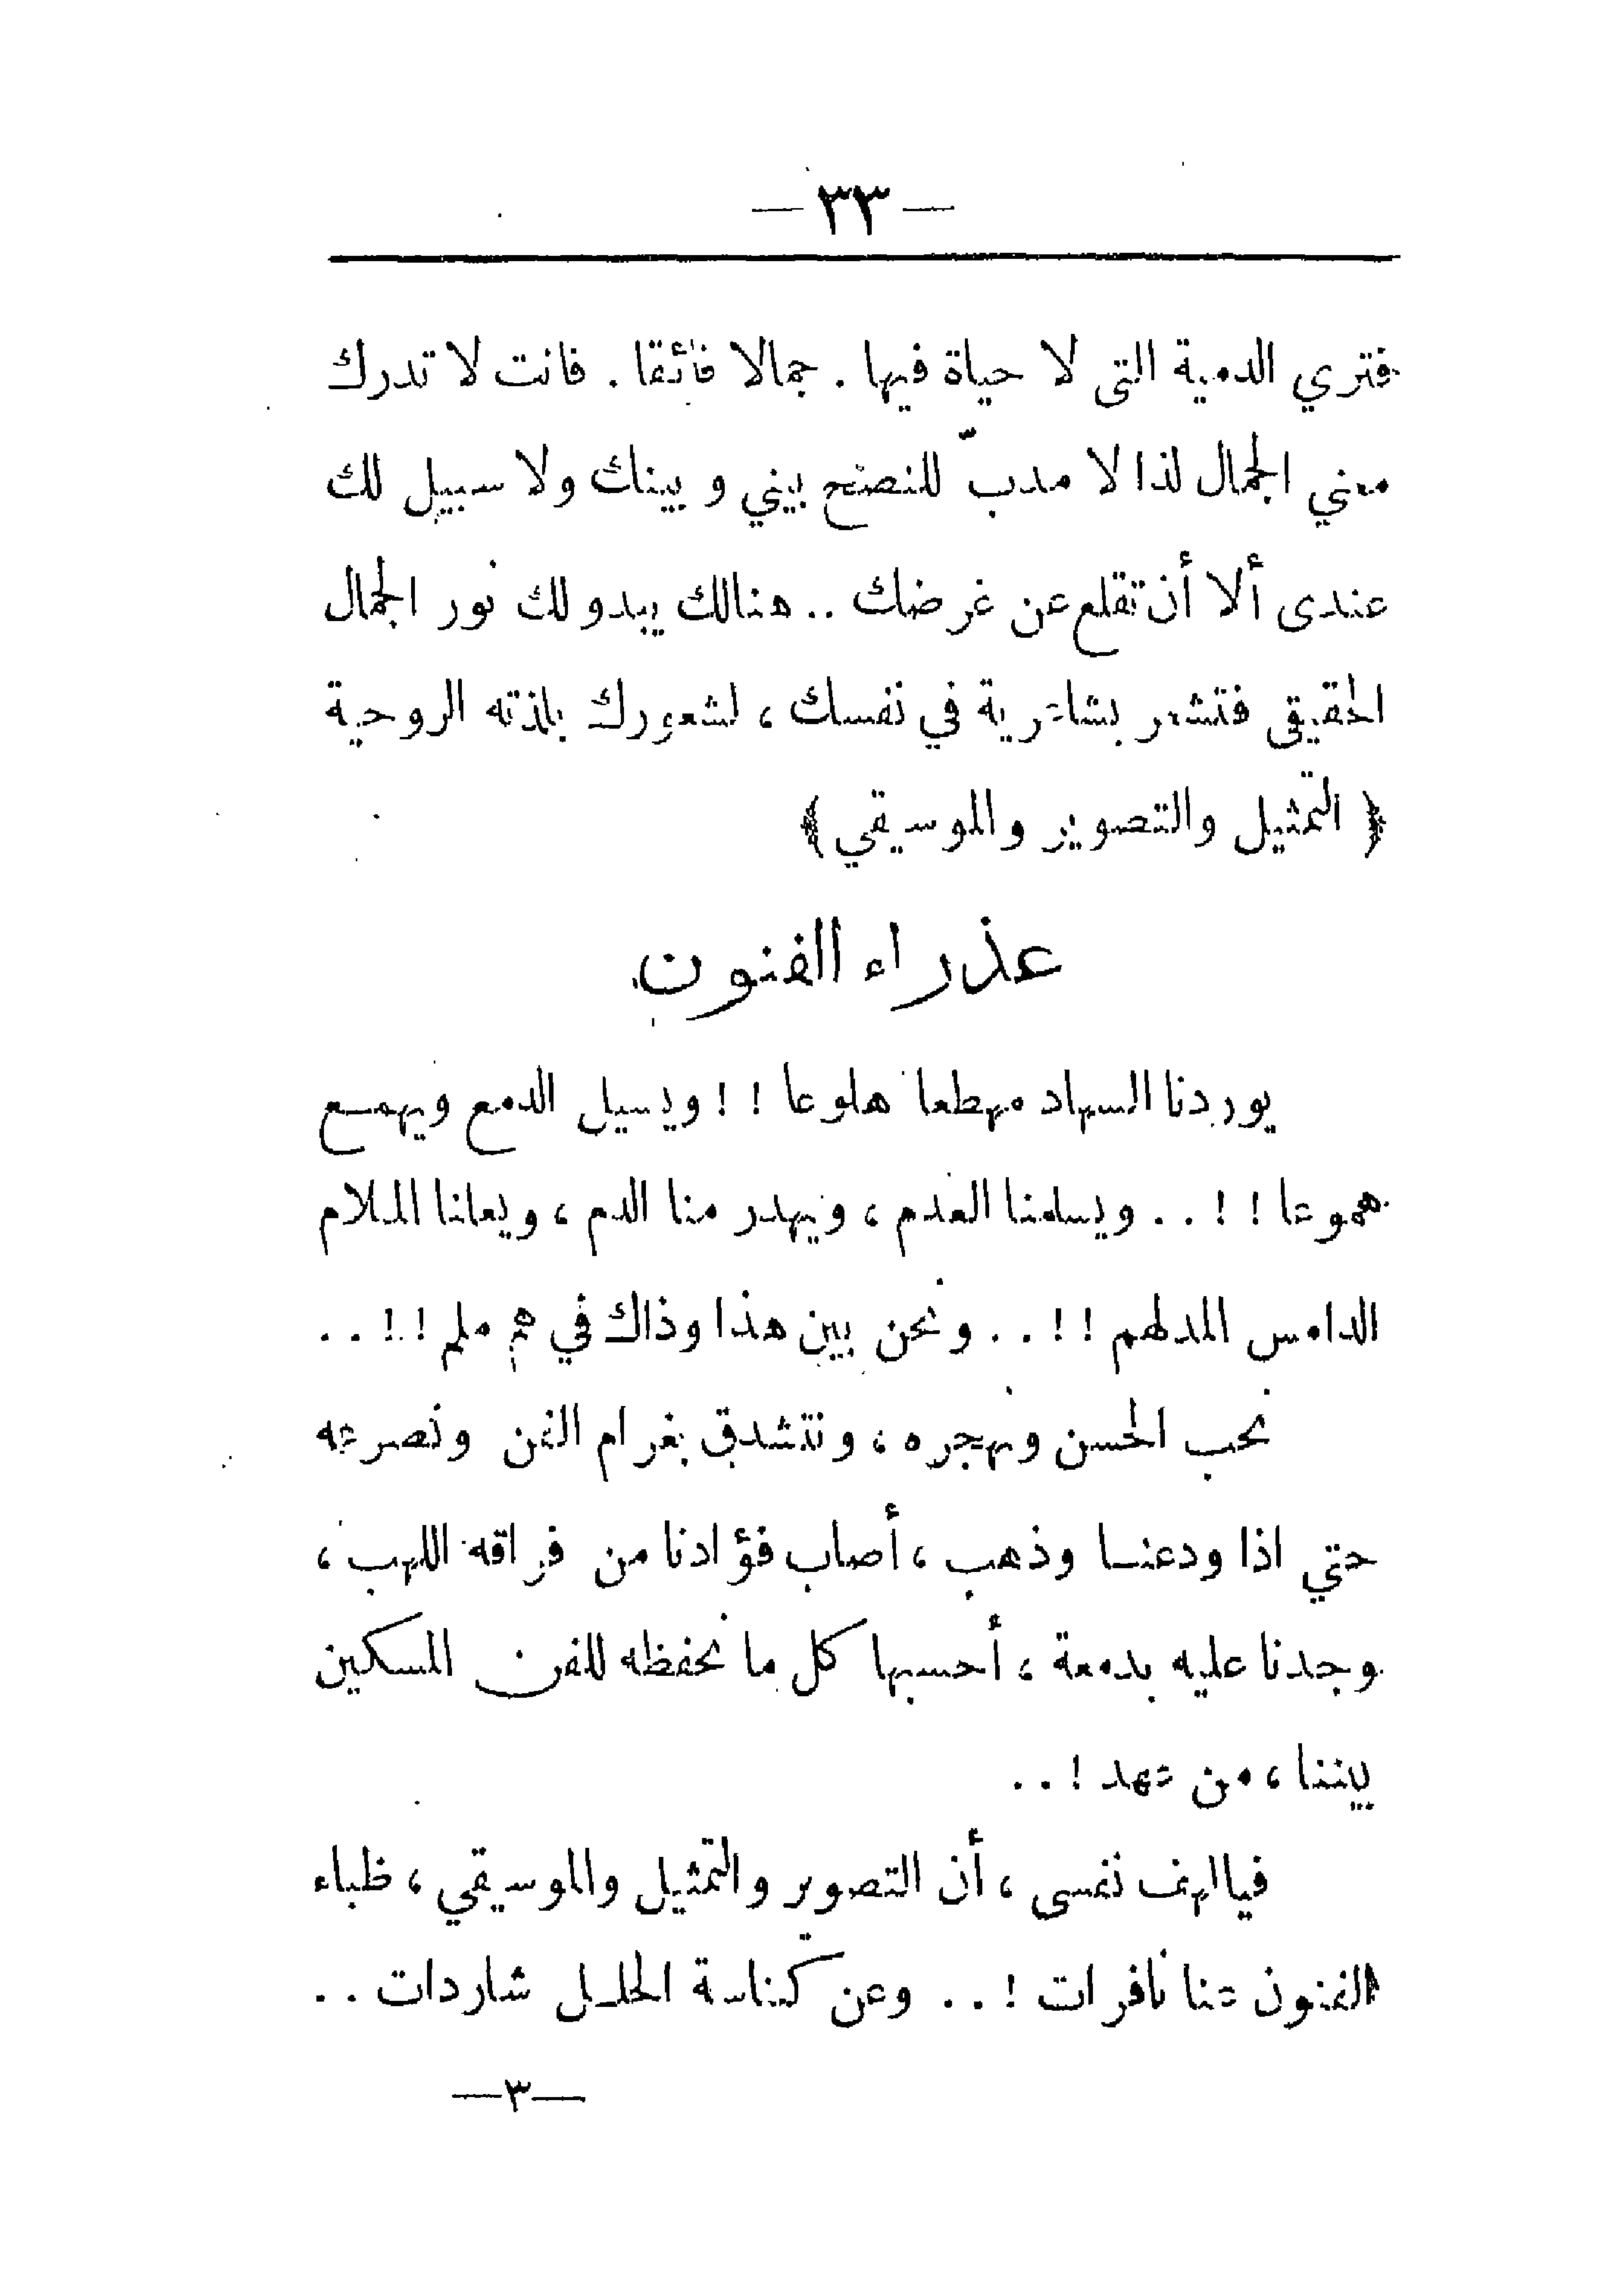 — ٣٣ —
فتري الدمية التى لا حياة فيها . جمالا فائقا . فانت لا تدرك
معني الجمال لذا لا مدبّ للنصح بيني و بينك ولا سبيل لك
عندى ألا أن تقلع عن غرضك .. هنالك يبدو لك نور الجمال
الحقيقى فتشعر بشاعرية في نفسك ، لشعورك بلذته الروحية
﴿ التمثيل والتصوير والموسيقي ﴾
عذراء الفنون
يوردنا السهاد مهطعا هلوعا ! ! ويسيل الدمع ويهمع
هموعا ! ! . . ويسلمنا العدم ، ويهدر منا الدم ، ويعلنا الملام
الدامس المدلهم ! ! . . ونحن بين هذا وذاك في هم ملم ! ! . .
نحب الحسن ونهجره ، ونتشدق بغرام الفن ونصرعه
حتي اذا ودعنا وذهب ، أصاب فؤادنا من فراقه اللهب ،
وجدنا عليه بدمعة ، أحسبها كل ما نحفظه للفن المسكين
بيننا ، من عهد ! . .
فيالهف نفسى ، أن التصوير والتمثيل والموسيقي ، ظباء
الفنون عنا نافرات ! . . وعن كناسة الحلل شاردات . .
—٣—